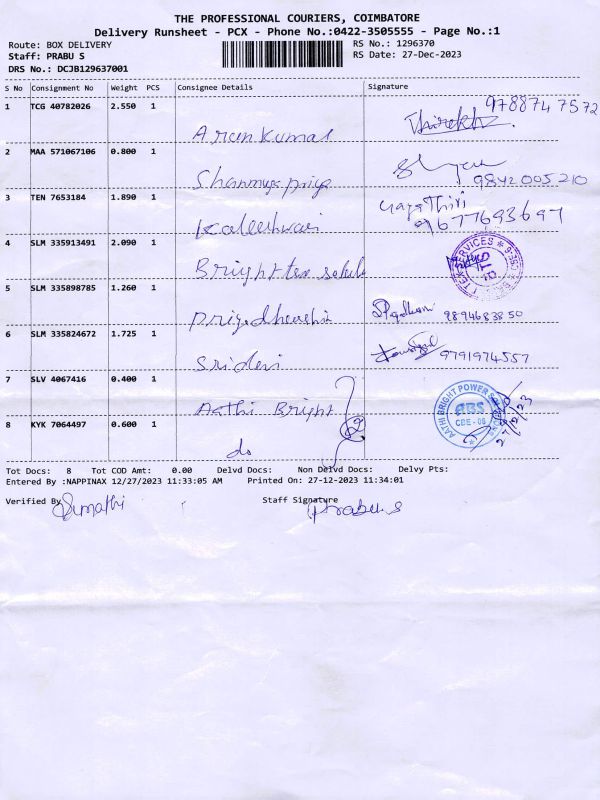 THE PROFESSIONAL COURIERS, COIMBATORE
Delivery Runsheet - PCX - Phone No.:0422-3505555 - Page No.:1
Route: BOX DELIVERY RS No.: 1296370
Staff: PRABU S RS Date: 27-Dec-2023
DRS No.: DCJB129637001
S No Consignment No Weight PCS Consignee Details Signature
1 TCG 40782026 2.550 1 Arun kumar 9788747572
2 MAA 571067106 0.800 1 Shanmuga priya 9842005210
3 TEN 7653184 1.890 1 Kaleeshwari Gayathiri 9677693697
4 SLM 335913491 2.090 1 Bright tex
5 SLM 335898785 1.260 1 9894683850
6 SLM 335824672 1.725 1 Sridevi 9791974557
7 SLV 4067416 0.400 1 Aathi Bright AATHI BRIGHT POWER ABS CBE - 06 27/12/23
8 KYK 7064497 0.600 1 do
Tot Docs: 8 Tot COD Amt: 0.00 Delvd Docs: Non Delvd Docs: Delvy Pts:
Entered By :NAPPINAX 12/27/2023 11:33:05 AM Printed On: 27-12-2023 11:34:01
Verified By Sumathi Staff Signature Prabu S